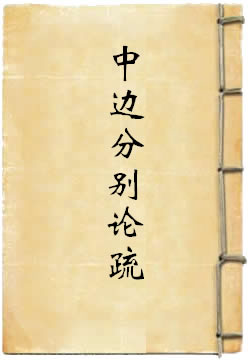 中边分别论疏